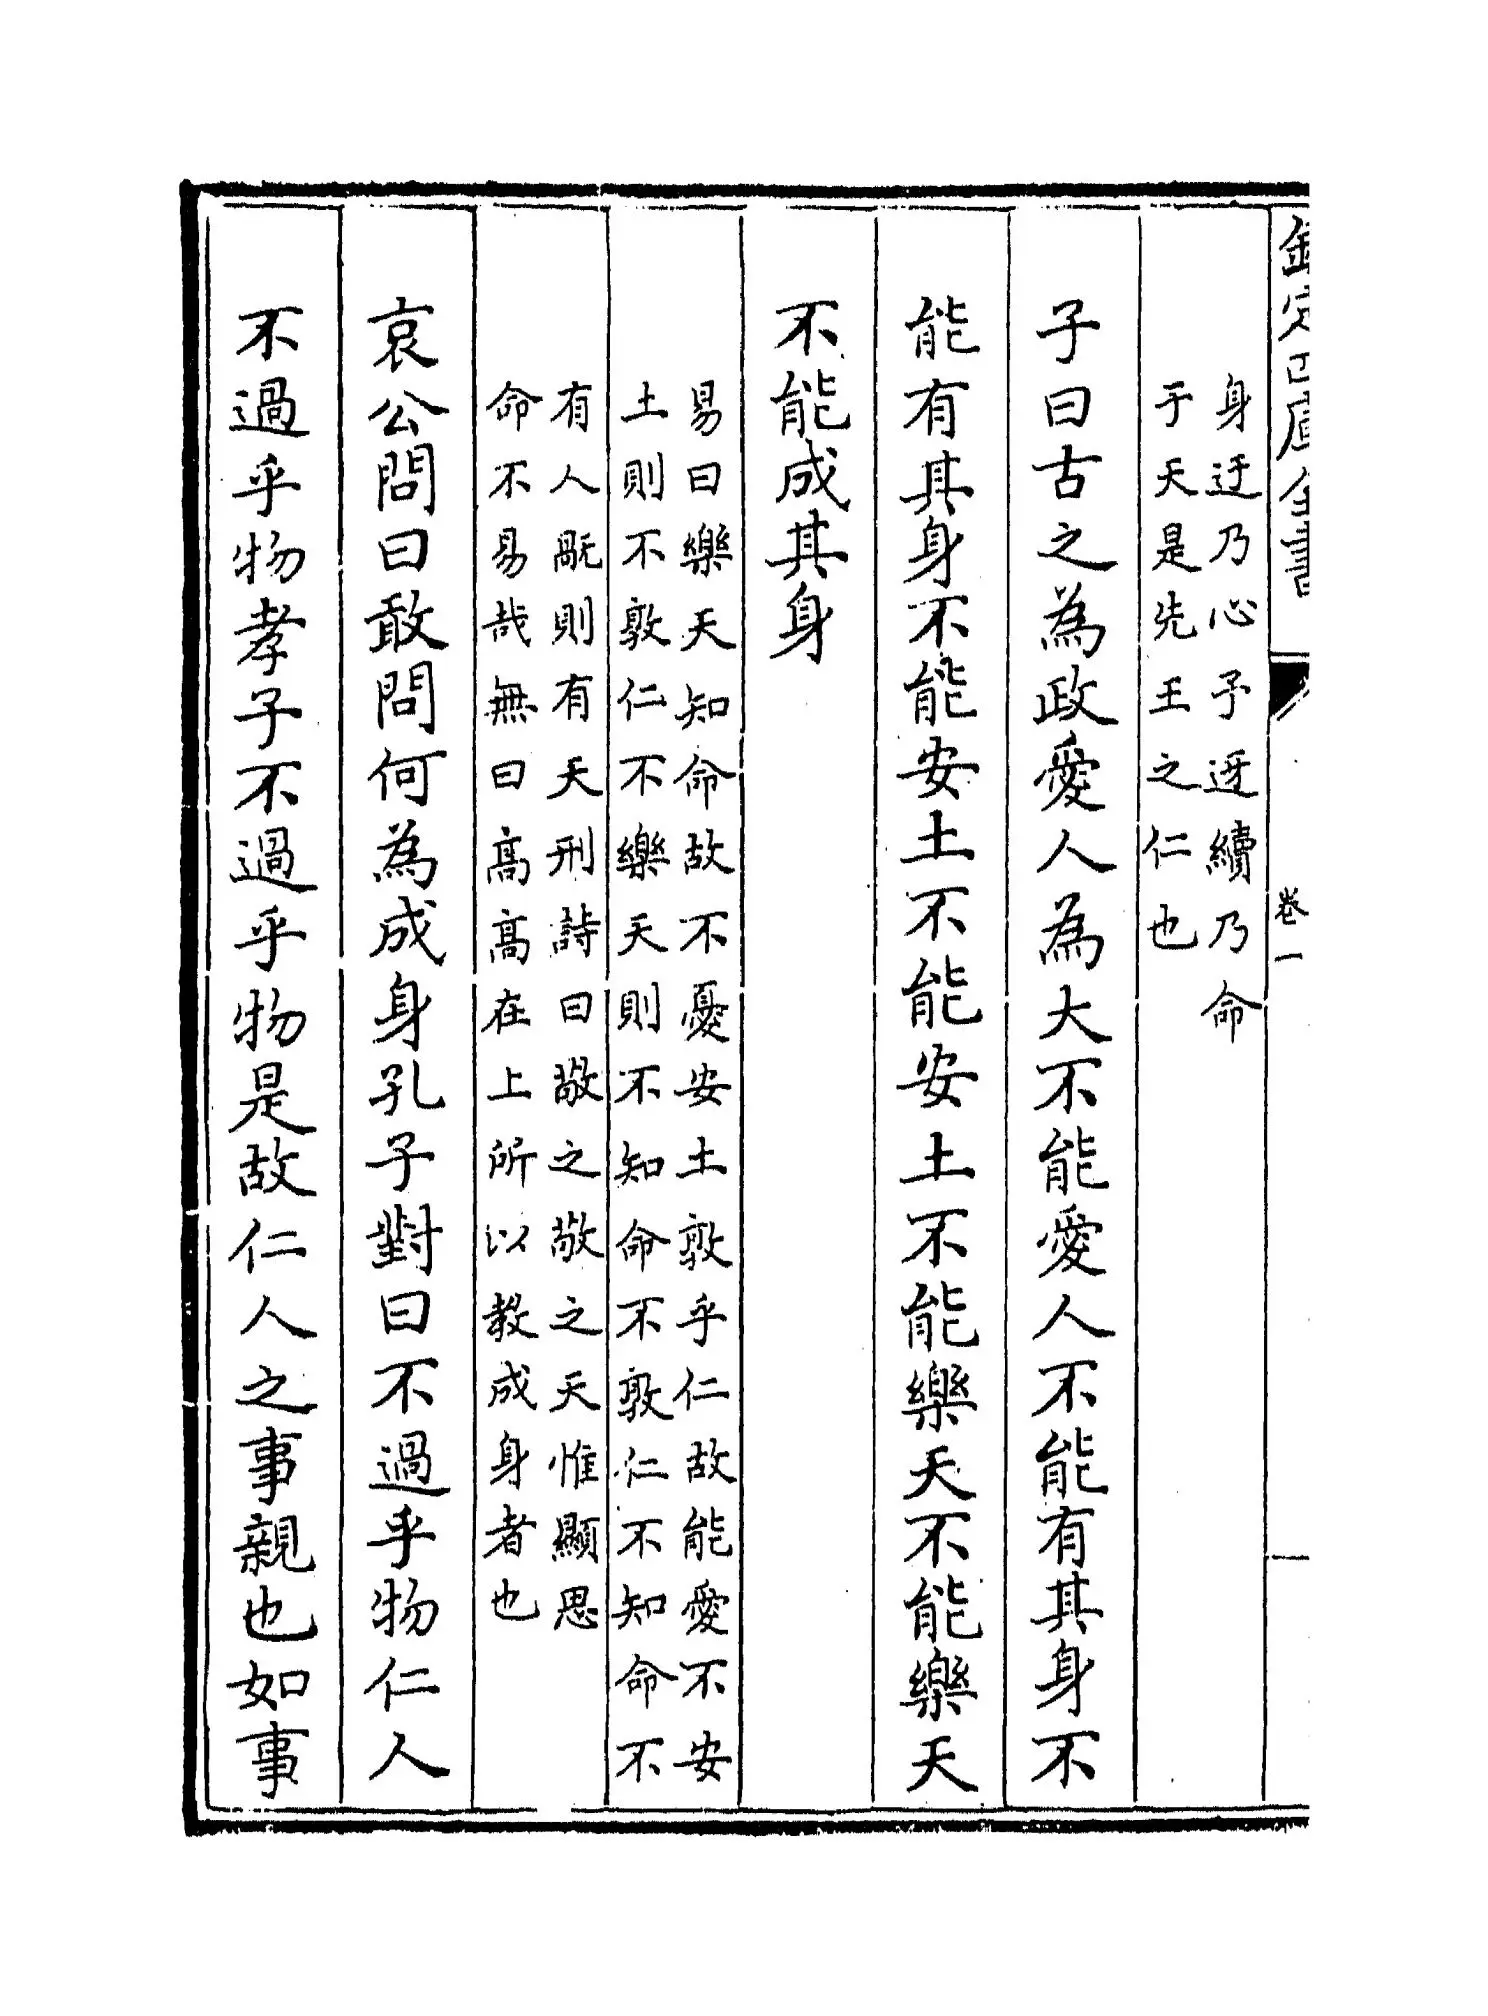 欽定四庫全書
卷一
身迂乃心予迓續乃命
于天是先王之仁也
子曰古之為政愛人為大不能愛人不能有其身不
能有其身不能安土不能安土不能樂天不能樂天
不能成其身
易曰樂天知命故不憂安土敦乎仁故能愛不安
土則不敦仁不樂天則不知命不敦仁不知命不
有人㽙則有天刑詩曰敬之敬之天惟顯思
命不易哉無曰高高在上所以教成身者也
哀公問曰敢問何為成身孔子對曰不過乎物仁人
不過乎物孝子不過乎物是故仁人之事親也如事